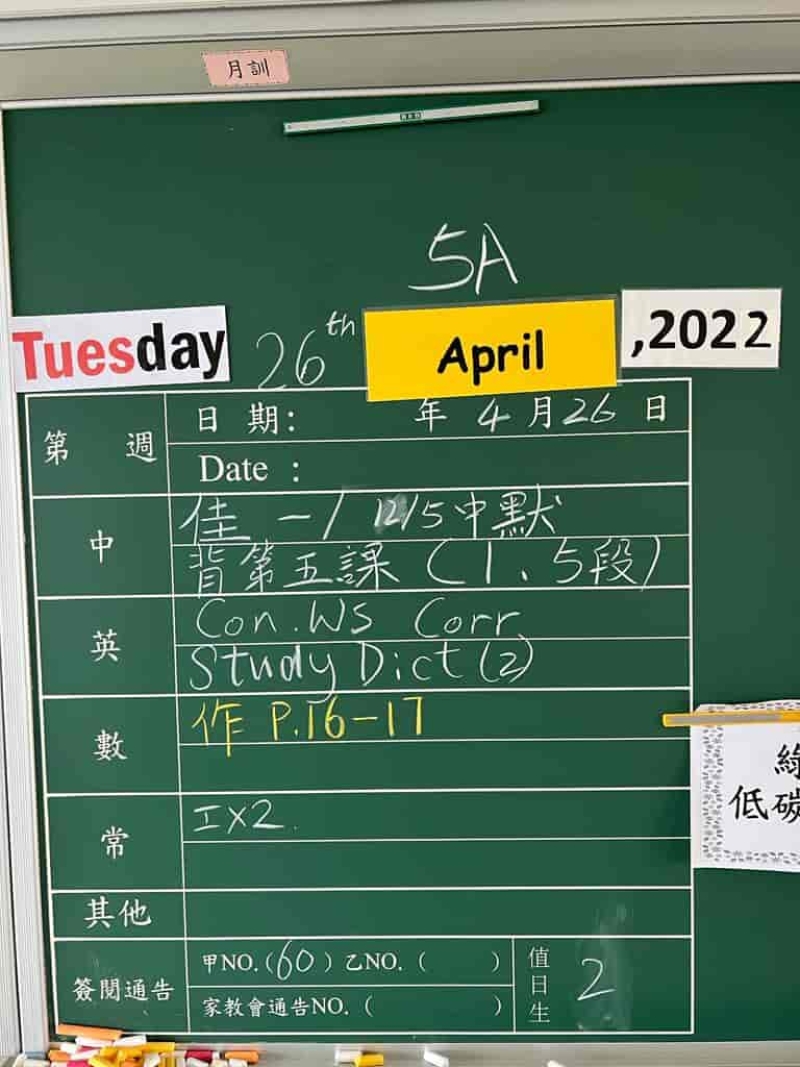 月訓
5A
Tuesday 26th April ,2022
第 週
日 期: 年 4 月 26 日
Date :
中
佳 一/ 12/5中默
背第五課(1、5段)
英
Con. WS Corr
Study Dict (2)
數
作 P.16-17
常
工x2.
其他
簽閱通告
甲NO.(60) 乙NO.( )
家教會通告NO.( )
值日生 2
低碳